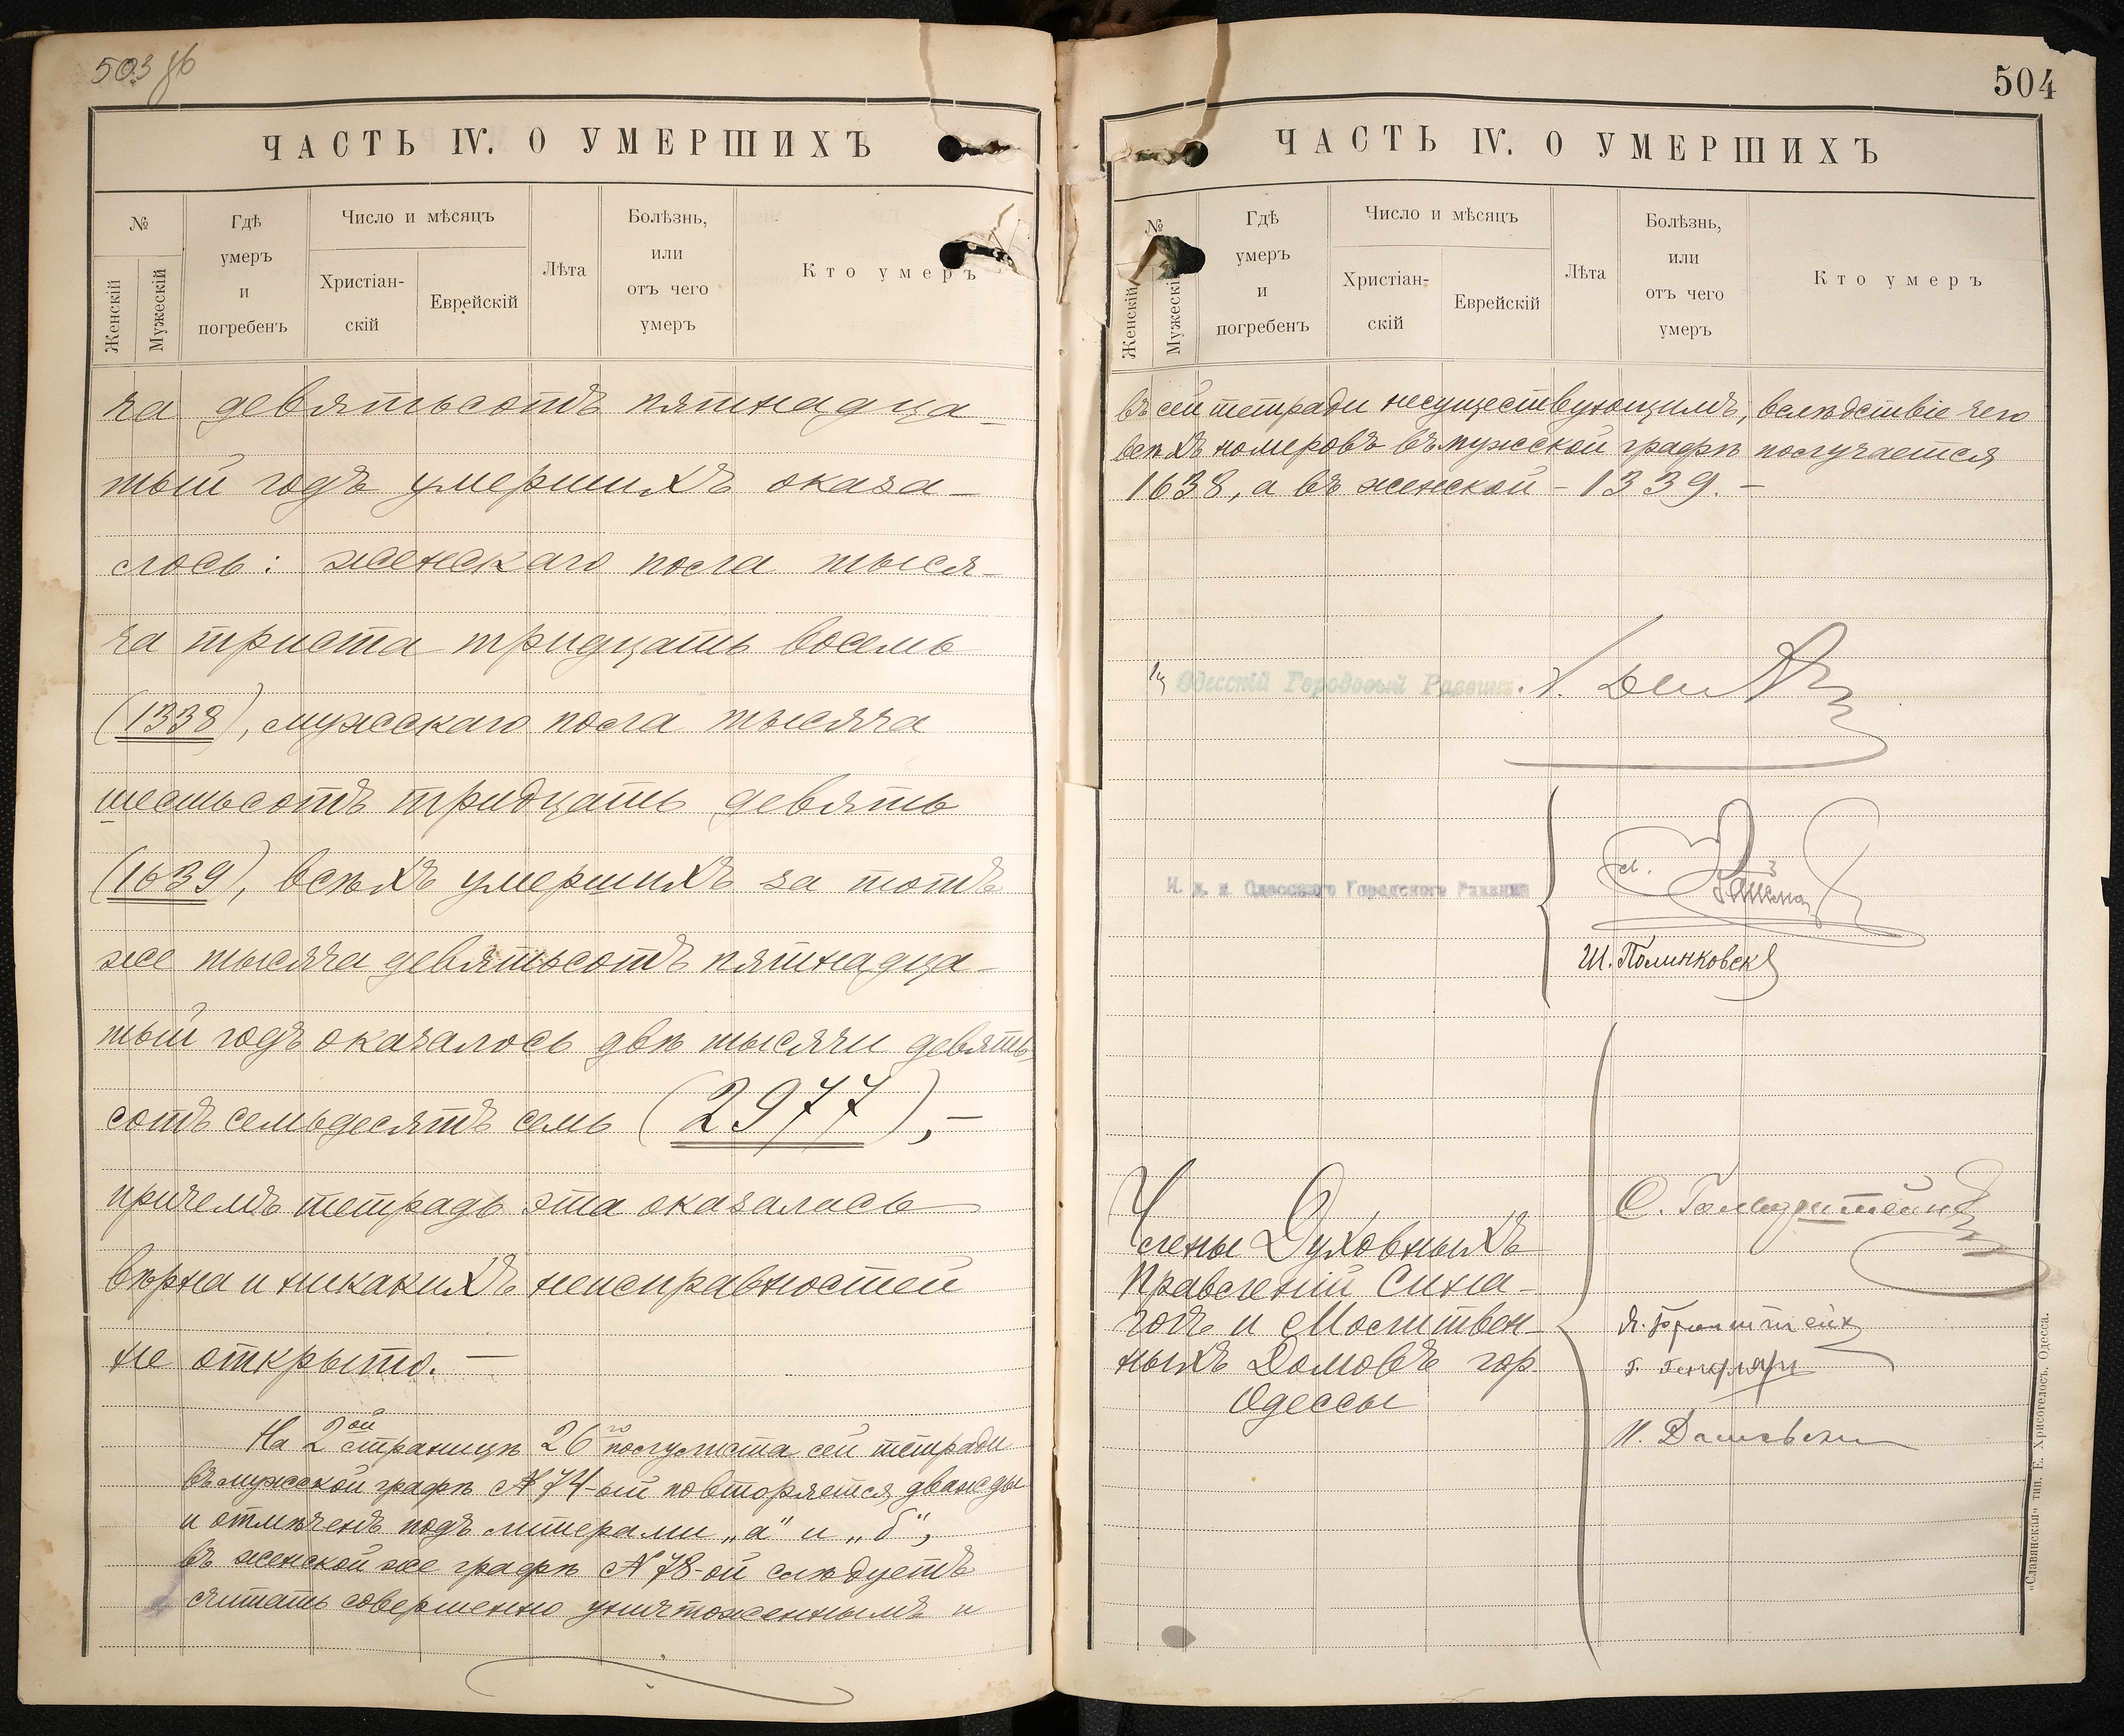 503 об
ЧАСТЬ IV. О УМЕРШИХЪ
№
Женскій
Мужескій
Гдѣ
умеръ
и
погребенъ
Число и мѣсяцъ
Христіан-
скій
Еврейскій
Лѣта
Болѣзнь,
или
отъ чего
умеръ
Кто умеръ
ча девятьсотъ пятнадца-
тый годъ умершихъ оказа-
лось: женскаго пола тыся-
ча триста тридцать восемь
(1338), мужскаго пола тысяча
шестьсотъ тридцать девять
(1639), всѣхъ умершихъ за тотъ
же тысяча девятьсотъ пятнадца-
тый годъ оказалось двѣ тысячи девять-
сотъ семьдесятъ семь (2977),-
причемъ тетрадь эта оказалась
вѣрна и никакихъ неисправностей
не открыто.-
На 2ой страницѣ 26го полулиста сей тетради
въ мужской графѣ № 74-ый повторяется дважды
и отмѣченъ подъ литерами „а" и „б",
въ женской же графѣ № 78-ой слѣдуетъ
считать совершенно уничтоженнымъ и
504
ЧАСТЬ IV. О УМЕРШИХЪ
№
Женскій
Мужескій
Гдѣ
умеръ
и
погребенъ
Число и мѣсяцъ
Христіан-
скій
Еврейскій
Лѣта
Болѣзнь,
или
отъ чего
умеръ
Кто умеръ
въ сей тетради несуществующимъ, вслѣдствіе чего
всѣхъ номеровъ въ мужской графѣ получается
1638, а въ женской - 1339.-
Одесскій Городовый Раввинъ
И. д. п. Одесскаго Городского Раввина
Ш. Полинковск
Члены Духовныхъ
Правленій Сина-
гогъ и Молитвен-
ныхъ Домовъ гор.
Одессы
О. Гольдштейнъ
Я. Бронштейн
«Славянская» тип. Е. Хрисогелосъ, Одесса.